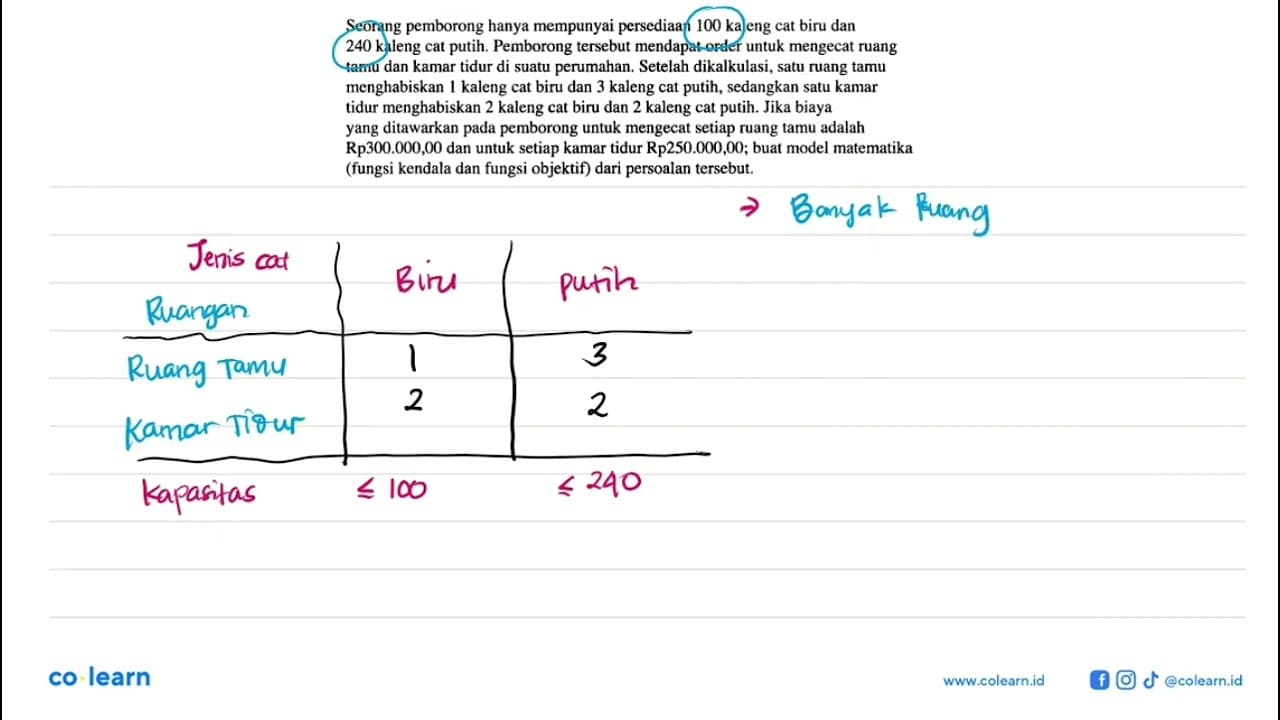 Seorang pemborong hanya mempunyai persediaan 100 kaleng cat biru dan
240 kaleng cat putih. Pemborong tersebut mendapat order untuk mengecat ruang
tamu dan kamar tidur di suatu perumahan. Setelah dikalkulasi, satu ruang tamu
menghabiskan 1 kaleng cat biru dan 3 kaleng cat putih, sedangkan satu kamar
tidur menghabiskan 2 kaleng cat biru dan 2 kaleng cat putih. Jika biaya
yang ditawarkan pada pemborong untuk mengecat setiap ruang tamu adalah
Rp300.000,00 dan untuk setiap kamar tidur Rp250.000,00; buat model matematika
(fungsi kendala dan fungsi objektif) dari persoalan tersebut.
→ Banyak Ruang
Jenis cat
Biru putih
Ruangan
Ruang Tamu 1 3
Kamar Tidur 2 2
Kapasitas ≤ 100 ≤ 240
co learn
www.colearn.id @colearn.id